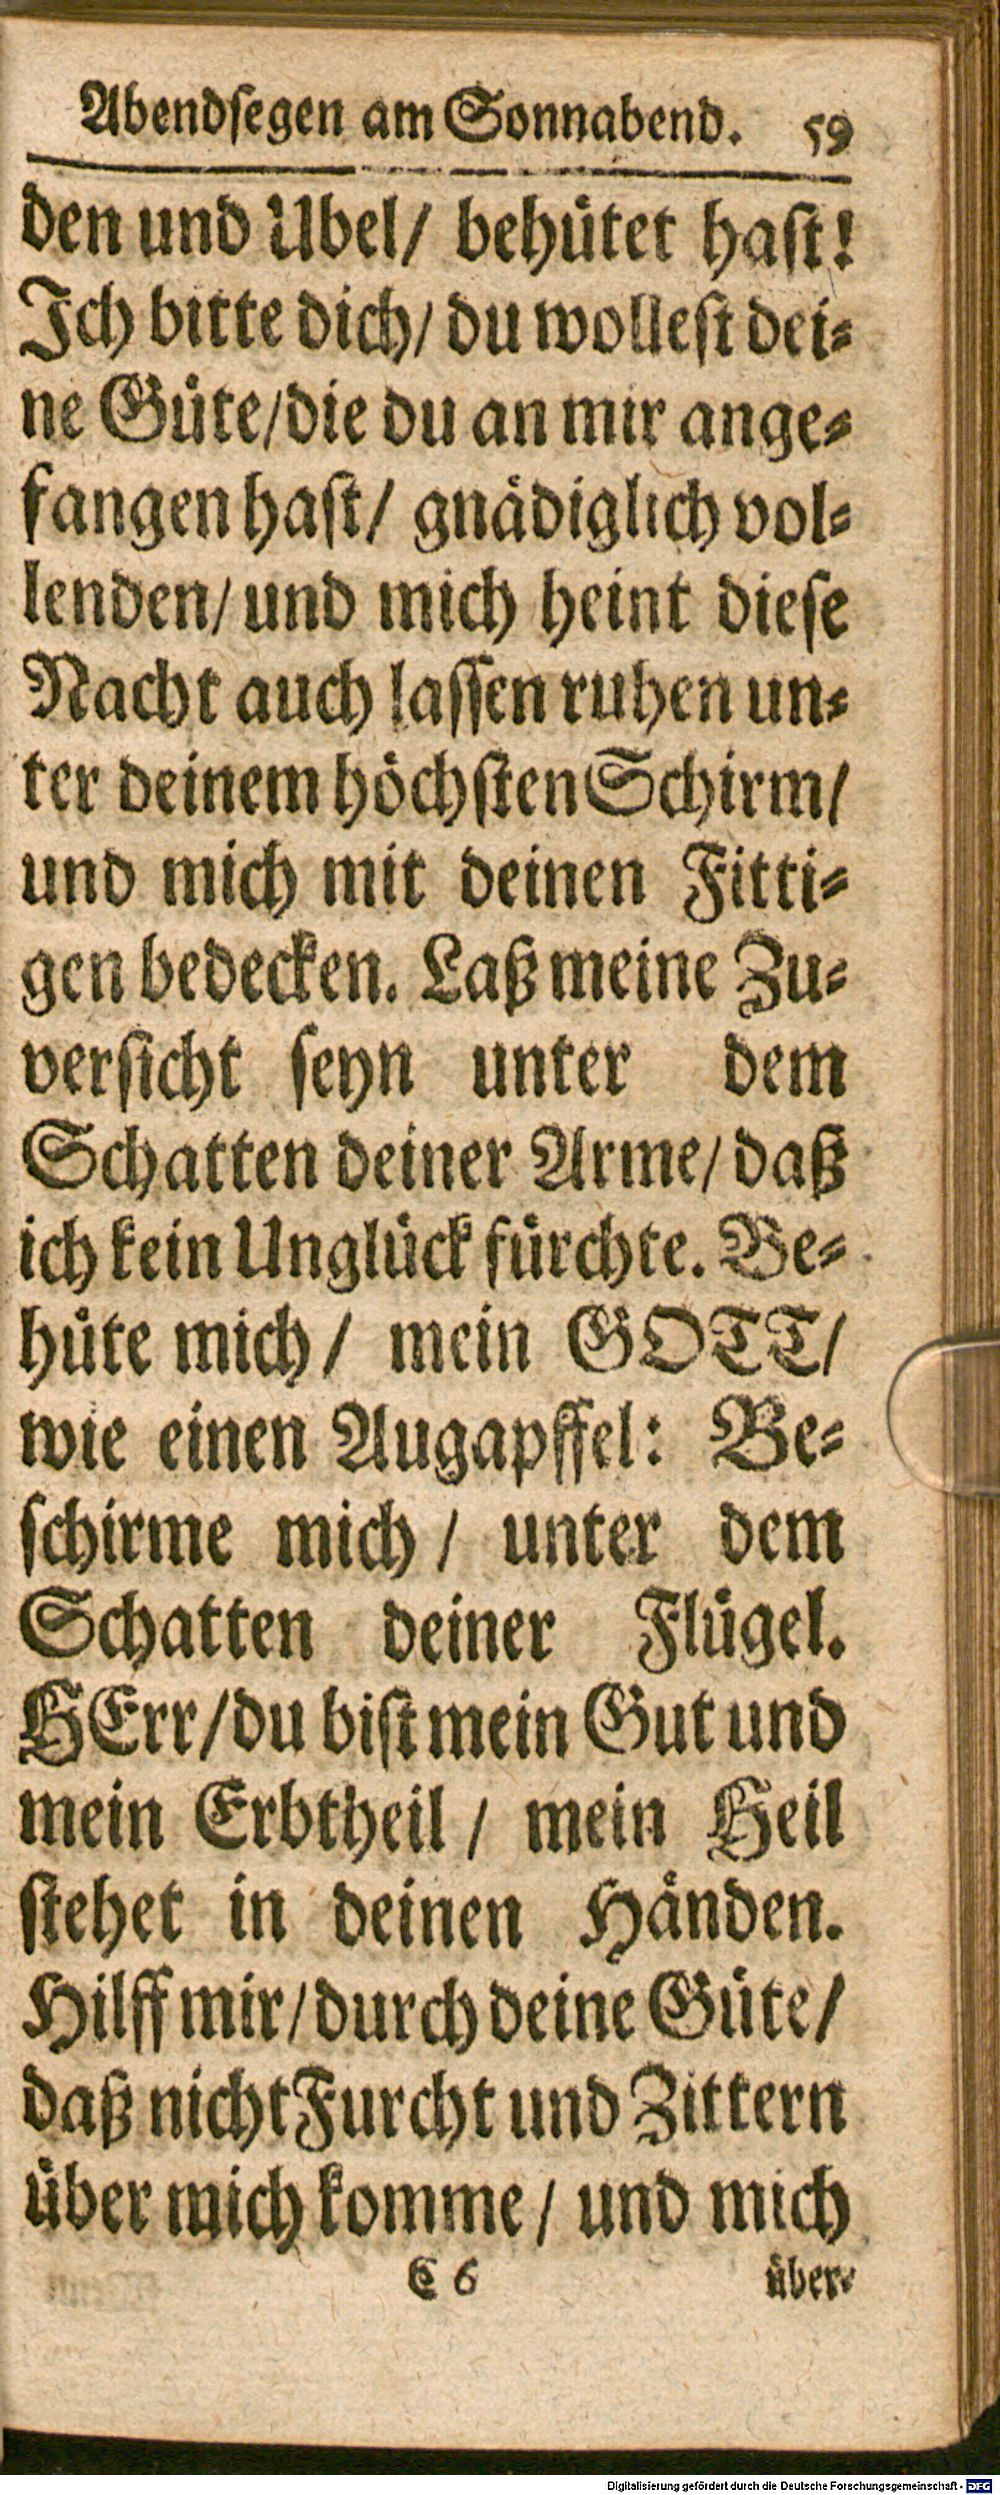 Abendſegen am Sonnabend. 59
den und Ubel/ behuͤtet haſt!
Ich bitte dich/ du wolleſt dei⸗
ne Guͤte/die du an mir ange⸗
fangen haſt/ gnaͤdiglich vol⸗
lenden/ und mich heint dieſe
Nacht auch laſſen ruhen un⸗
ter deinem hoͤchſten Schirm/
und mich mit deinen Fitti⸗
gen bedecken. Laß meine Zu⸗
verſicht ſeyn unter dem
Schatten deiner Arme/ daß
ich kein Ungluͤck fuͤrchte. Be⸗
huͤte mich/ mein GOTT/
wie einen Augapffel: Be⸗
ſchirme mich/ unter dem
Schatten deiner Fluͤgel.
HErr/du biſt mein Gut und
mein Erbtheil/ mein Heil
ſtehet in deinen Haͤnden.
Hilff mir/durch deine Guͤte/
daß nicht Furcht und Zittern
uͤber mich komme/ und mich
C 6 uͤber⸗
Digitalisierung gefördert durch die Deutsche Forschungsgemeinschaft - DFG